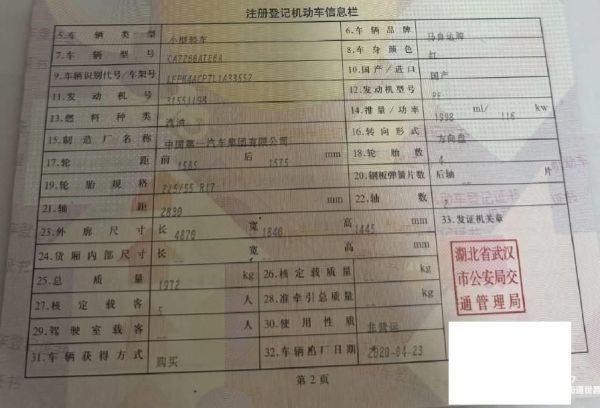 注册登记机动车信息栏
5.车辆类型 小型轿车 6.车辆品牌 马自达牌
7.车辆型号 8.车身颜色 红
9.车辆识别代号/车架号 10.国产/进口 国产
11.发动机号 12.发动机型号
13.燃料种类 汽油 14.排量/功率 1998 ml/ 116 kw
15.制造厂名称 中国第一汽车集团有限公司 16.转向形式 方向盘
17.轮距 前 1585 后 1575 mm 18.轮胎数 4
19.轮胎规格 225/55 R17 20.钢板弹簧片数 后轴 片
21.轴距 2830 mm 22.轴数 2
23.外廓尺寸 长 4870 宽 1840 高 1445 mm 33.发证机关章
24.货厢内部尺寸 长 宽 高 mm
25.总质量 1972 kg 26.核定载质量 kg
27.核定载客 5 人 28.准牵引总质量 kg
29.驾驶室载客 人 30.使用性质 非营运
31.车辆获得方式 购买 32.车辆出厂日期 2020-04-23
湖北省武汉
市公安局交
通管理局
第2页